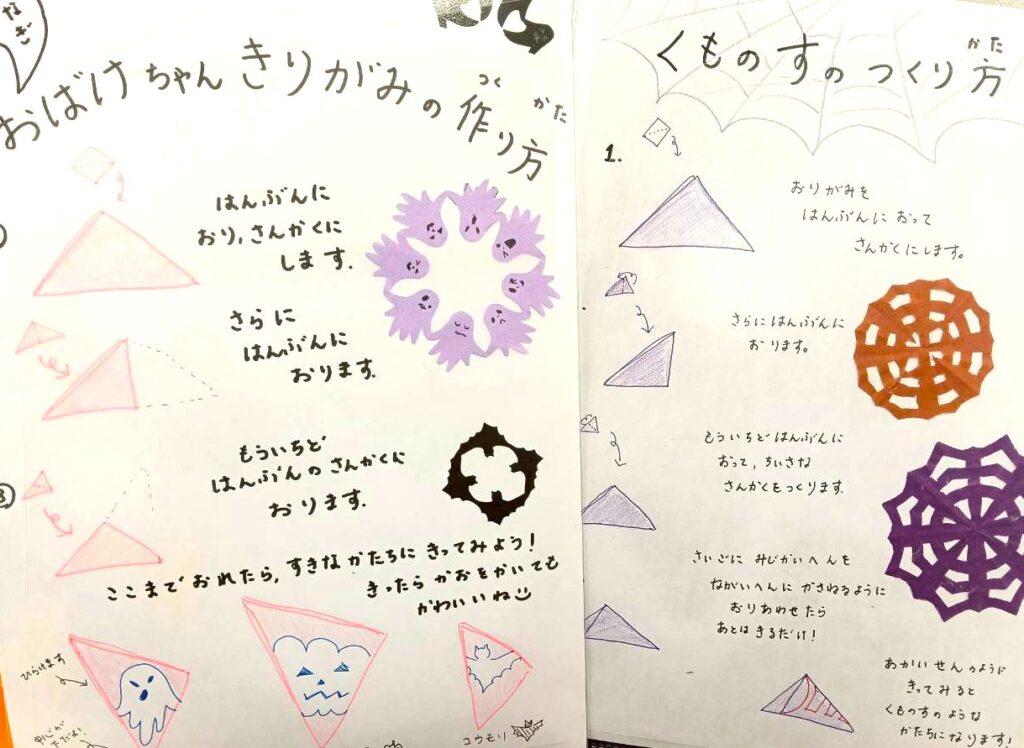 なぎ
おばけちゃんきりがみの作り方
つく かた
はんぶんに
おり,さんかくに
します.
さらに
はんぶんに
おります.
③
もういちど
はんぶんのさんかくに
おります.
ここまでおれたら,すきなかたちにきってみよう!
きったらかおをかいても
かわいいね
ひらけます
コウモリ
くものすのつくり方
かた
1.
おりがみを
はんぶんにおって
さんかくにします。
さらにはんぶんに
おります。
もういちどはんぶんに
おって,ちいさな
さんかくをつくります.
さいごにみじかいへんを
ながいへんにかさねるように
おりあわせたら
あとはきるだけ!
あかいせんのように
きってみると
くものすのような
かたちになります!